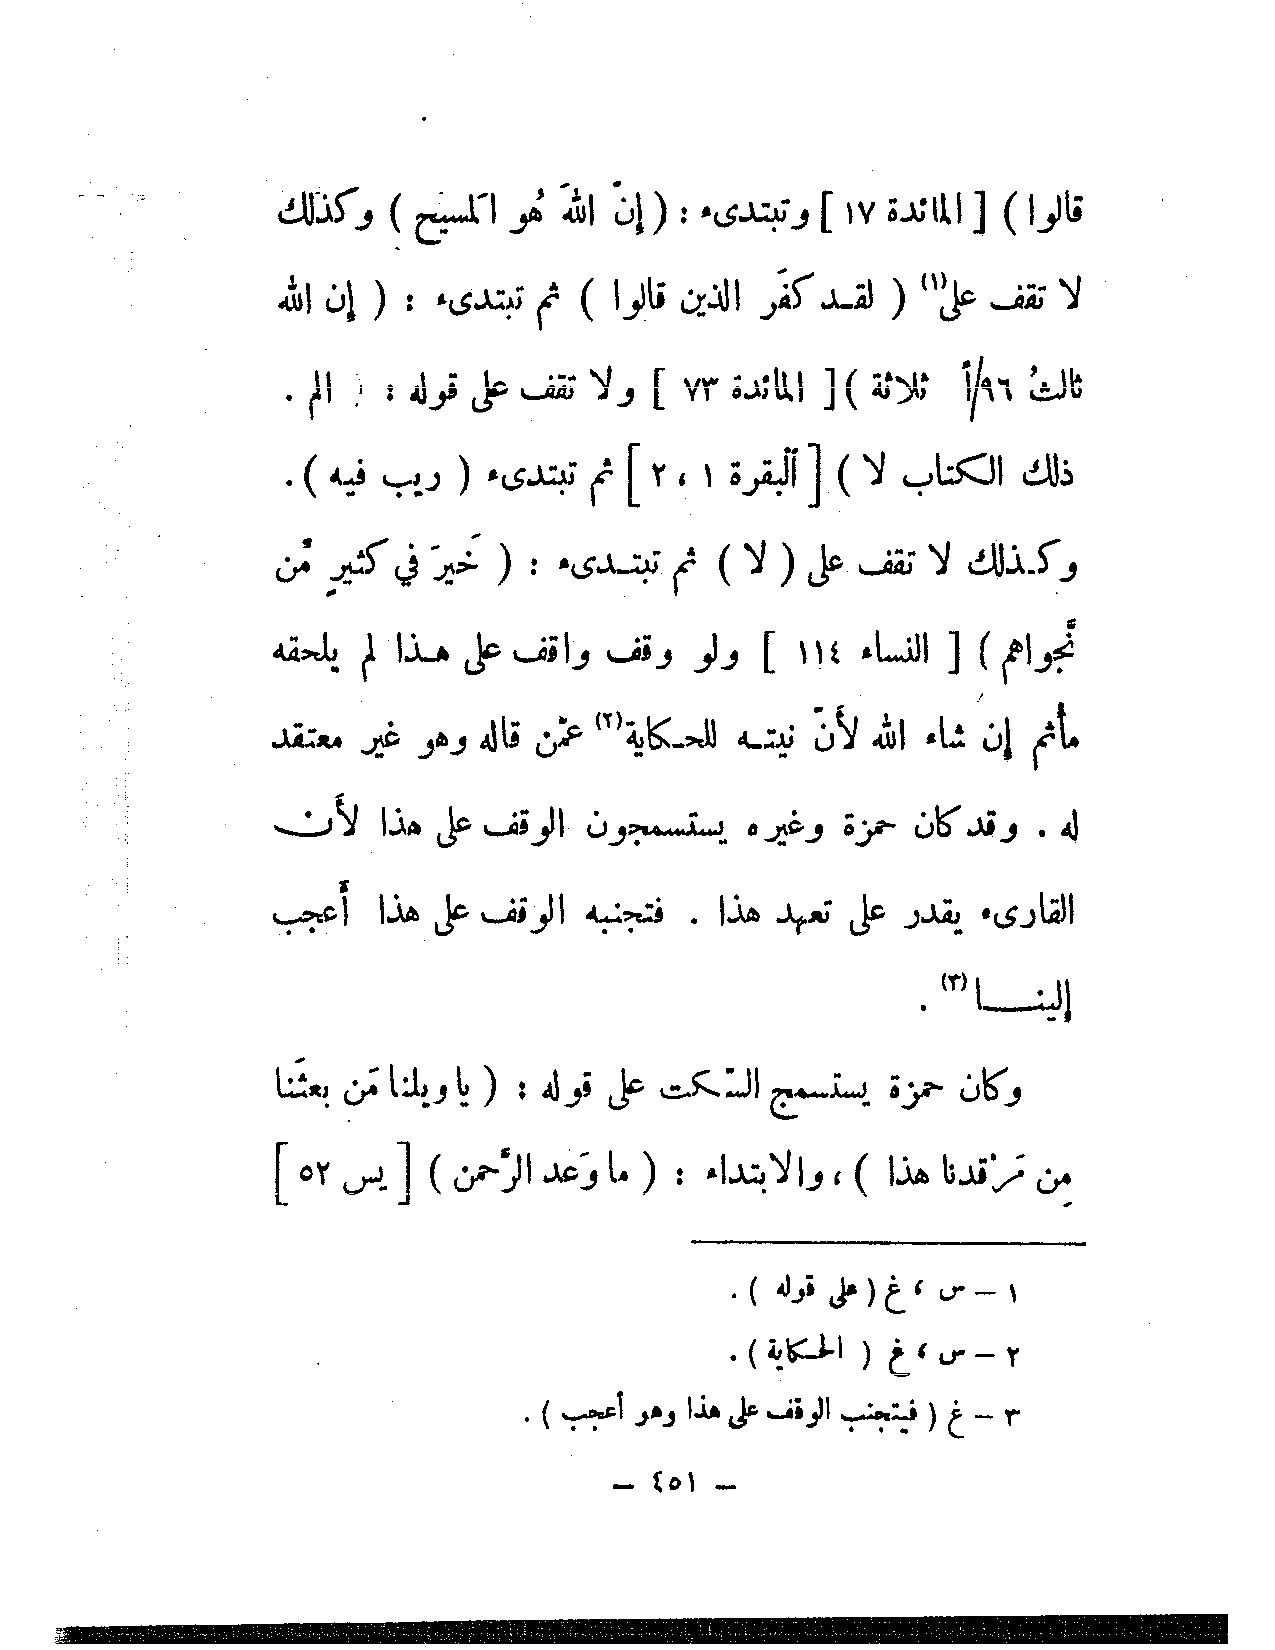 قالوا ) [ المائدة ١٧ ] وتبتدىء : ( إنّ اللهَ هُو المسيح ) وكذلك
لا تقف على(١) ( لقد كفَر الذين قالوا ) ثم تبتدىء : ( إن الله
ثالثُ ٩٦/أ ثلاثة ) [ المائدة ٧٣ ] ولا تقف على قوله : ( الم .
ذلك الكتاب لا ) [ البقرة ١ ، ٢ ] ثم تبتدىء ( ريب فيه ) .
وكذلك لا تقف على ( لا ) ثم تبتدىء : ( خَيرَ في كثيرٍ مّن
نّجواهم ) [ النساء ١١٤ ] ولو وقف واقف على هذا لم يلحقه
مأثم إن شاء الله لأنّ نيته للحكاية(٢) عمّن قاله وهو غير معتقد
له . وقد كان حمزة وغيره يستسمجون الوقف على هذا لأن
القارىء يقدر على تعهد هذا . فتجنبه الوقف على هذا أعجب
إلينا(٣) .
وكان حمزة يستسمج السّكت على قوله : ( ياويلنا مَن بعثَنا
مِن مَرْقدنا هذا ) ، والابتداء : ( ما وَعد الرَّحمن ) [ يس ٥٢ ]
١ – س ، غ ( على قوله ) .
٢ – س ، غ ( الحكاية ) .
٣ – غ ( فيتجنب الوقف على هذا وهو أعجب ) .
– ٤٥١ –